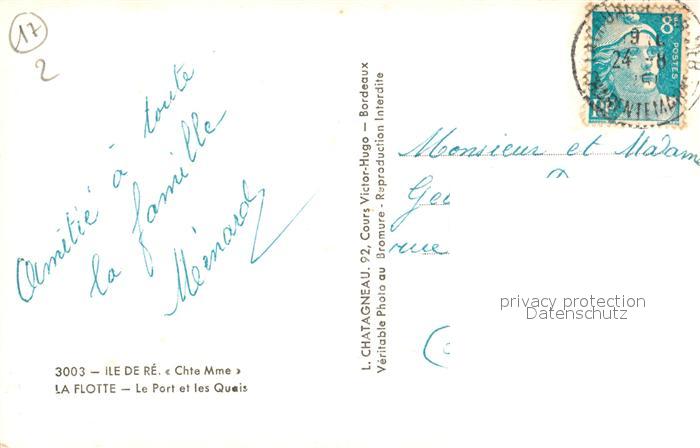 17
2
Amitié à toute
la famille
Ménard
3003 — ILE DE RÉ. « Chte Mme »
LA FLOTTE — Le Port et les Quais
L. CHATAGNEAU. 92, Cours Victor-Hugo — Bordeaux
Véritable Photo au Bromure - Reproduction Interdite
8F
POSTES
19
24-8
Monsieur et Madame
Ge
rue
(
privacy protection
Datenschutz